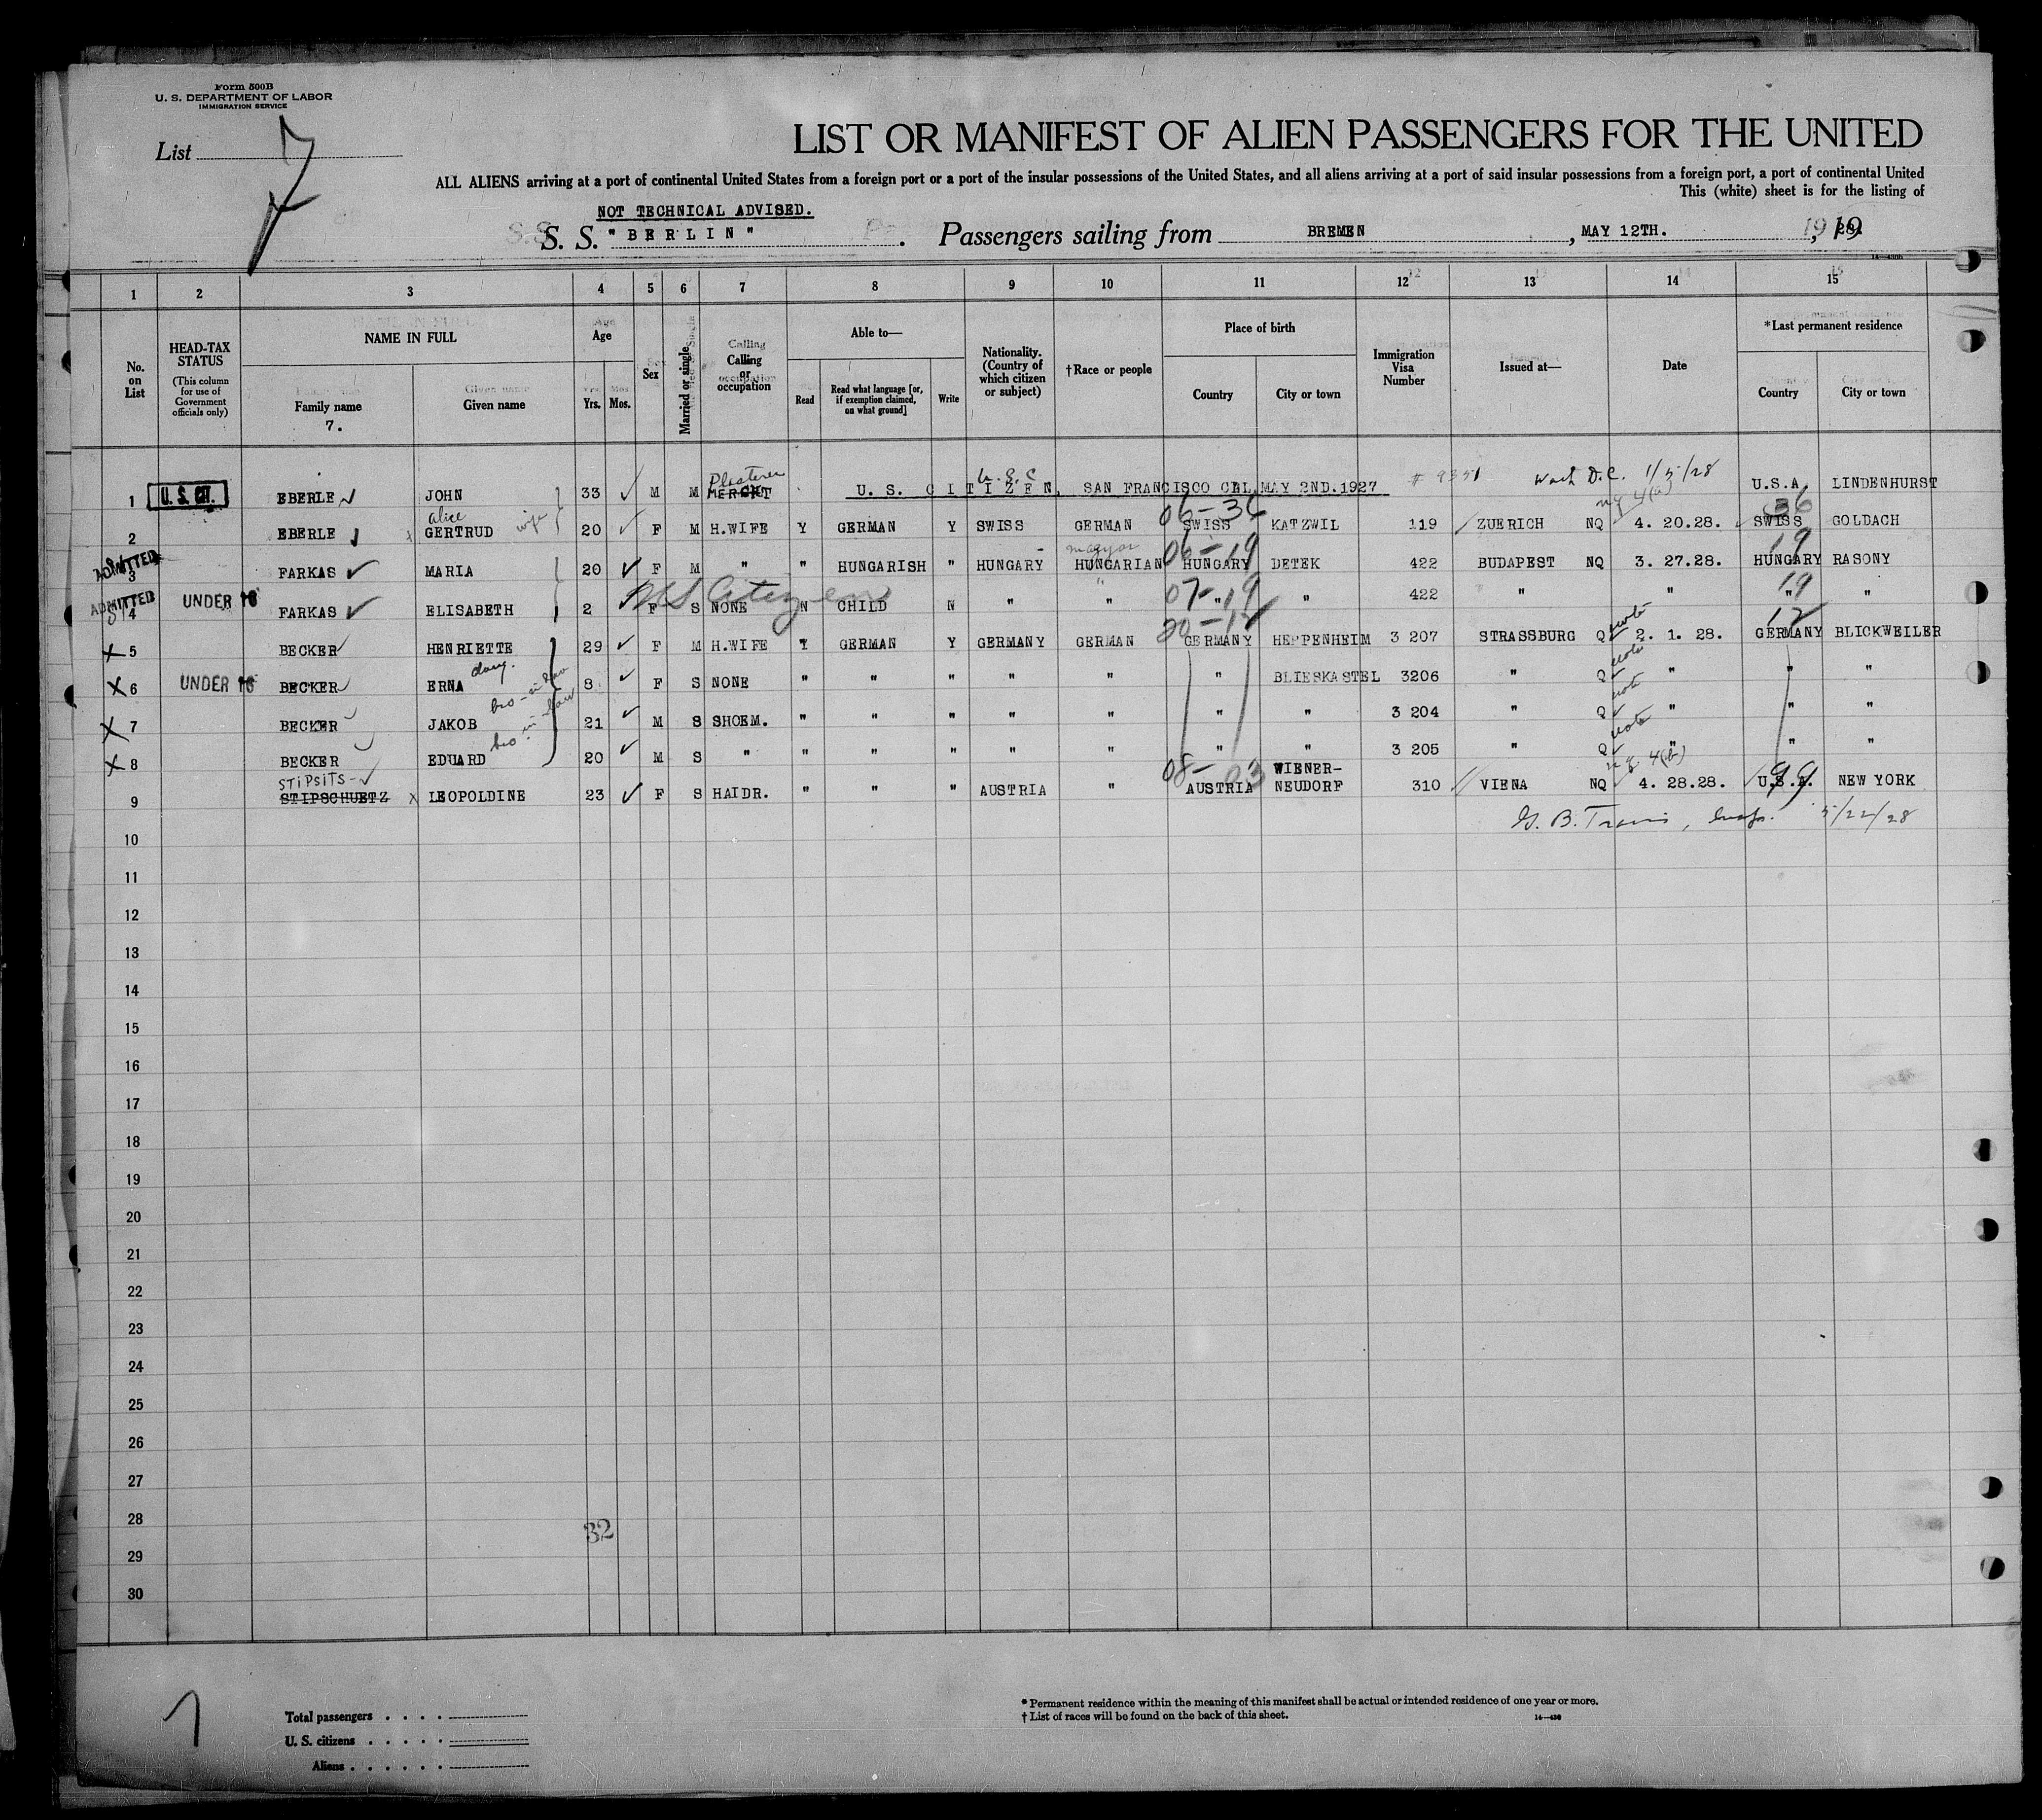 Form 500B
U. S. DEPARTMENT OF LABOR
IMMIGRATION SERVICE
List 7
LIST OR MANIFEST OF ALIEN PASSENGERS FOR THE UNITED
ALL ALIENS arriving at a port of continental United States from a foreign port or a port of the insular possessions of the United States, and all aliens arriving at a port of said insular possessions from a foreign port, a port of continental United
This (white) sheet is for the listing of
NOT TECHNICAL ADVISED.
S. S. "BERLIN" . Passengers sailing from BREMEN , MAY 12TH. , 1928.
1 2 3 4 5 6 7 8 9 10 11 12 13 14 15
No. on List
HEAD-TAX STATUS (This column for use of Government officials only)
NAME IN FULL
Family name
7.
Given name
Age
Yrs. Mos.
Sex
Married or single
Calling or occupation
Able to—
Read
Read what language [or, if exemption claimed, on what ground]
Write
Nationality. (Country of which citizen or subject)
†Race or people
Place of birth
Country
City or town
Immigration Visa Number
Issued at—
Date
*Last permanent residence
Country
City or town
Plasterer U.S.C # 9351 Wash D.C. 1/5/28
1 U.S. CIT. EBERLE JOHN 33 M M MERCHT U. S. CITIZEN, SAN FRANCISCO CAL. MAY 2ND.1927 U.S.A. LINDENHURST
alice wife 06-36 nq 4(a) 36
2 EBERLE GERTRUD 20 F M H.WIFE Y GERMAN Y SWISS GERMAN SWISS KATZWIL 119 ZUERICH NQ 4. 20.28. SWISS GOLDACH
magyar 06-19 19
ADMITTED 3 FARKAS MARIA 20 F M " " HUNGARISH " HUNGARY HUNGARIAN HUNGARY DETEK 422 BUDAPEST NQ 3. 27.28. HUNGARY RASONY
US Citizen 07-19 19
ADMITTED 4 UNDER 16 FARKAS ELISABETH 2 F S NONE N CHILD N " " " " 422 " " " "
20-12 quota 12
X 5 BECKER HENRIETTE 29 F M H.WIFE Y GERMAN Y GERMANY GERMAN GERMANY HEPPENHEIM 3 207 STRASSBURG Q 2. 1. 28. GERMANY BLICKWEILER
daug. quota
X 6 UNDER 16 BECKER ERNA 8 F S NONE " " " " " " BLIESKASTEL 3206 " Q " " "
bro-in-law quota
X 7 BECKER JAKOB 21 M S SHOEM. " " " " " " " 3 204 " Q " " "
bro-in-law quota
X 8 BECKER EDUARD 20 M S " " " " " " " " 3 205 " Q " " "
STIPSITS 08-03 WIENER- nq 4(b) 99
9 STIPSCHUETZ LEOPOLDINE 23 F S HAIDR. " " " AUSTRIA " AUSTRIA NEUDORF 310 VIENA NQ 4. 28.28. U.S.A. NEW YORK
G. B. Travis, 5/22/28
10
11
12
13
14
15
16
17
18
19
20
21
22
23
24
25
26
27
28
32
29
30
Total passengers
U. S. citizens
Aliens
* Permanent residence within the meaning of this manifest shall be actual or intended residence of one year or more.
† List of races will be found on the back of this sheet.
14—430